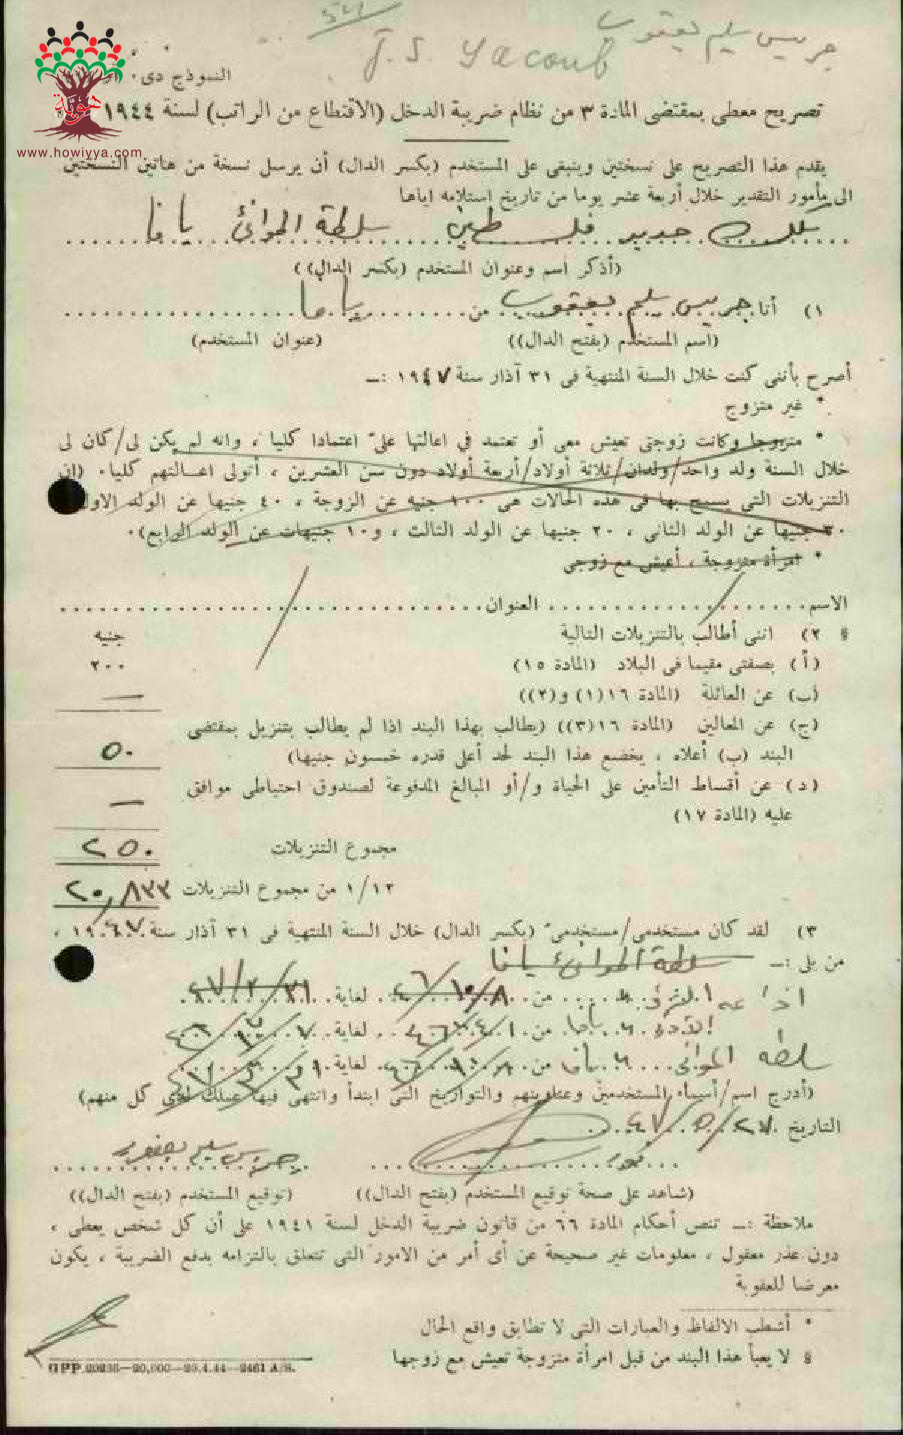 جريس سليم يعقوب
J. S. Yacoub
النموذج دى
www.howiyya.com
تصريح معطى بمقتضى المادة ٣ من نظام ضريبة الدخل (الاقتطاع من الراتب) لسنة ١٩٤٤
يقدم هذا التصريح على نسختين وينبغى على المستخدم (بكسر الدال) أن يرسل نسخة من هاتين النسختين
الى مأمور التقدير خلال أربعة عشر يوما من تاريخ استلامه اياها
سكك حديد فلسطين سلطة الموانئ يافا
(أذكر اسم وعنوان المستخدم (بكسر الدال))
١) أنا جريس سليم يعقوب من يافا
(اسم المستخدم (بفتح الدال)) (عنوان المستخدم)
أصرح بأننى كنت خلال السنة المنتهية فى ٣١ آذار سنة ١٩٤٧ :ـ
* غير متزوج
* متزوجا وكانت زوجتى تعيش معى أو تعتمد في اعالتها علىّ اعتمادا كليا ، وانه لم يكن لى/كان لى
خلال السنة ولد واحد/ولدان/ثلاثة أولاد/أربعة أولاد دون سن العشرين ، أتولى اعالتهم كليا. (ان
التنزيلات التى يسمح بها فى هذه الحالات هى ١٠٠ جنيه عن الزوجة ، ٤٠ جنيها عن الولد الاول
٣٠ جنيها عن الولد الثانى ، ٢٠ جنيها عن الولد الثالث ، و١٠ جنيهات عن الولد الرابع).
* امرأة متزوجة ، أعيش مع زوجى
الاسم العنوان
§ ٢) اننى أطالب بالتنزيلات التالية جنيه
(أ) بصفتى مقيما فى البلاد (المادة ١٥) ٢٠٠
(ب) عن العائلة (المادة ١٦(١) و(٢)) —
(ج) عن المعالين (المادة ١٦(٣)) (يطالب بهذا البند اذا لم يطالب بتنزيل بمقتضى
البند (ب) أعلاه ، يخضع هذا البند لحد أعلى قدره خمسون جنيها) ٥٠
(د) عن أقساط التأمين على الحياة و/أو المبالغ المدفوعة لصندوق احتياطى موافق
عليه (المادة ١٧) —
مجموع التنزيلات ٢٥٠
١/١٢ من مجموع التنزيلات ٢٠,٨٣٣
٣) لقد كان مستخدمى/مستخدمىّ (بكسر الدال) خلال السنة المنتهية فى ٣١ آذار سنة ١٩٤٧ ،
من يلى :ـ سلطة الموانئ يافا
من لغاية
يافا من لغاية
سلطة الموانئ يافا من لغاية
(أدرج اسم/أسماء المستخدمين وعناوينهم والتواريخ التى ابتدأ وانتهى فيها عملك لدى كل منهم)
التاريخ ٢٧/٥/٤٧
جريس سليم يعقوب
(شاهد على صحة توقيع المستخدم (بفتح الدال)) (توقيع المستخدم (بفتح الدال))
ملاحظة :ـ تنص أحكام المادة ٦٦ من قانون ضريبة الدخل لسنة ١٩٤١ على أن كل شخص يعطى ،
دون عذر معقول ، معلومات غير صحيحة عن أى أمر من الامور التى تتعلق بالتزامه بدفع الضريبة ، يكون
معرضا للعقوبة
* أشطب الالفاظ والعبارات التى لا تطابق واقع الحال
§ لا يعبأ هذا البند من قبل امرأة متزوجة تعيش مع زوجها
GPP. 20236—20,000—26.4.44—2461 A/S.